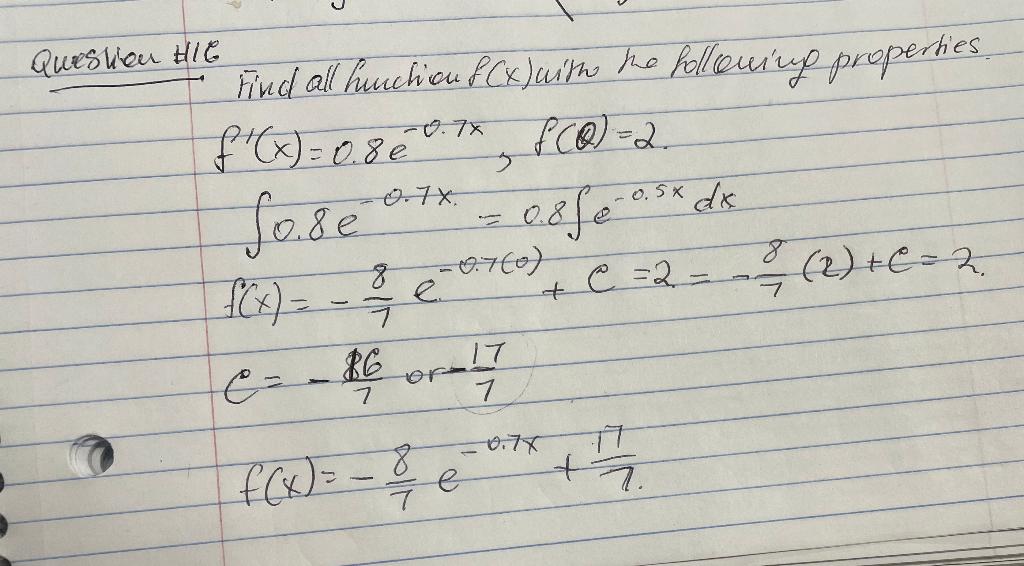 Question #16
Find all function f(x) with the following properties.
f'(x) = 0.8e^-0.7x , f(0) = 2.
∫0.8e^-0.7x. = 0.8∫e^-0.5x dx
f(x) = - 8/7 e^-0.7(0) + C = 2 = - 8/7 (2) + C = 2.
C = - 16/7 or - 17/7
f(x) = - 8/7 e^-0.7x + 17/7.